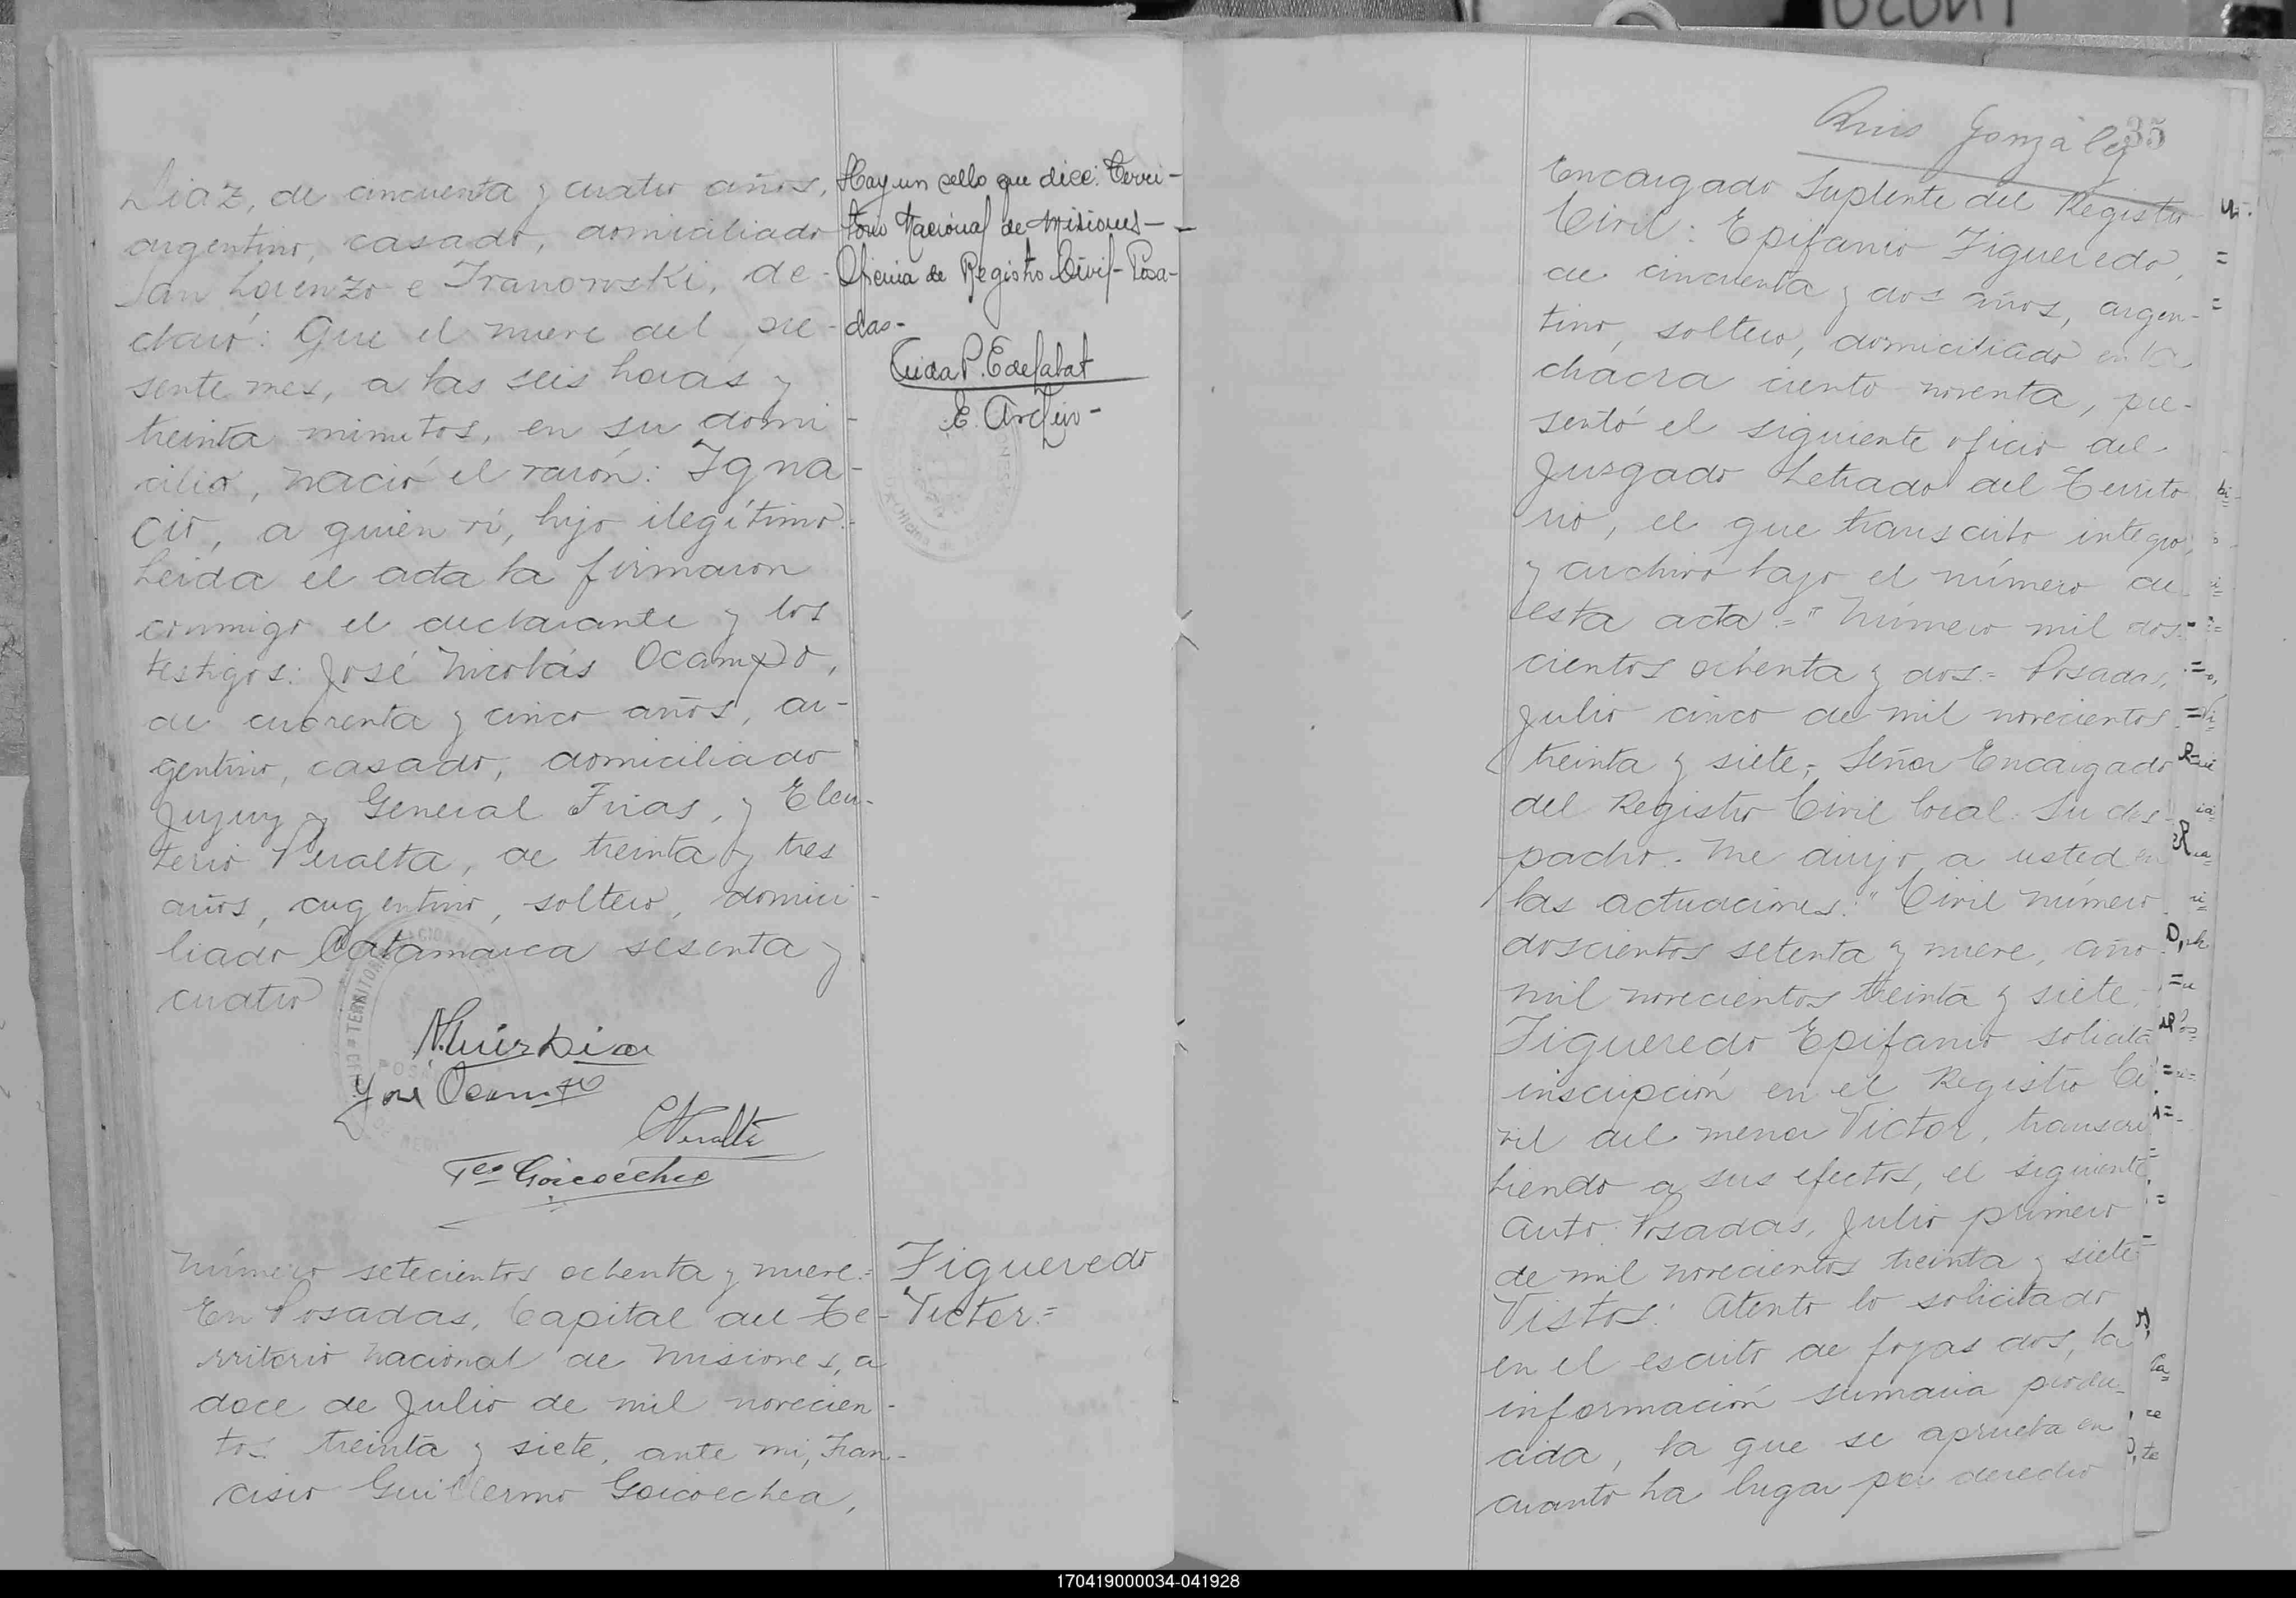 Diaz, de cincuenta y cuatro años,
argentino, casado, domiciliado
San Lorenzo e Iranowski, de-
claró: Que el nueve del pre-
sente mes, a las seis horas y
treinta minutos, en su domi-
cilio, nació el varón: Igna-
cio, a quien ví, hijo ilegítimo.-
Leida el acta la firmaron
conmigo el declarante y los
testigos: José Nicolás Ocampo,
de cuarenta y cinco años, ar-
gentino, casado, domiciliado
Jujuy y General Frias, y Eleu-
terio Peralta, de treinta y tres
años, argentino, soltero, domici-
liado Catamarca sesenta y
cuatro
N. Luis Diaz
José Ocampo
E Peralta
Fco Goicoechea
Número setecientos ochenta y nueve.=
En Posadas, Capital del Te-
rritorio Nacional de Misiones, a
doce de Julio de mil novecien-
tos treinta y siete, ante mi, Fran-
cisco Guillermo Goicoechea,
Hay un sello que dice: Terri-
torio Nacional de Misiones-
Oficina de Registro Civil- Posa-
das-
E. Archivo-
Figueredo
Victor=
González
35
Encargado Suplente del Registro
Civil: Epifanio Figueredo,
de cincuenta y dos años, argen-
tino, soltero, domiciliado en la
chacra ciento noventa, pre-
sentó el siguiente oficio del
Juzgado Letrado del Territo
rio, el que transcribo integro,
y archivo bajo el número de
esta acta:=" Número mil dos-
cientos ochenta y dos.= Posadas,
Julio cinco de mil novecientos
treinta y siete.- Señor Encargado
del Registro Civil local. Su des-
pacho.- Me dirijo a usted en
las actuaciones:" Civil número
doscientos setenta y nueve, año
mil novecientos treinta y siete,
Figueredo Epifanio solicita
inscripción en el Registro Ci
vil del menor Victor, transcri
biendo a sus efectos, el siguiente
auto: Posadas, Julio primero
de mil novecientos treinta y siete
Vistos: Atento lo solicitado
en el escrito de fojas dos, la
información sumaria produ-
cida, la que se aprueba en
cuanto ha lugar por derecho
170419000034-041928